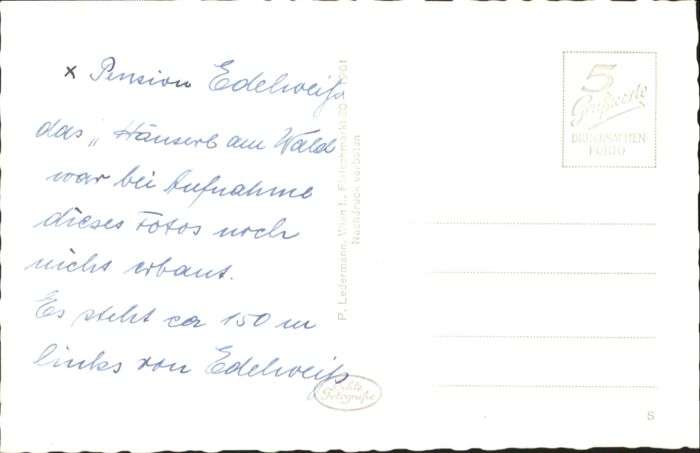 x Pension Edelweiß
das „Häuserl am Wald
war bei Aufnahme
dieses Fotos noch
nicht erbaut.
Es steht ca 150 m
links von Edelweiß
P. Ledermann, Wien I., Fleischmarkt 20
Nachdruck verboten
5
Grußworte
DRUCKSACHEN-
PORTO
Echte
Fotografie
S